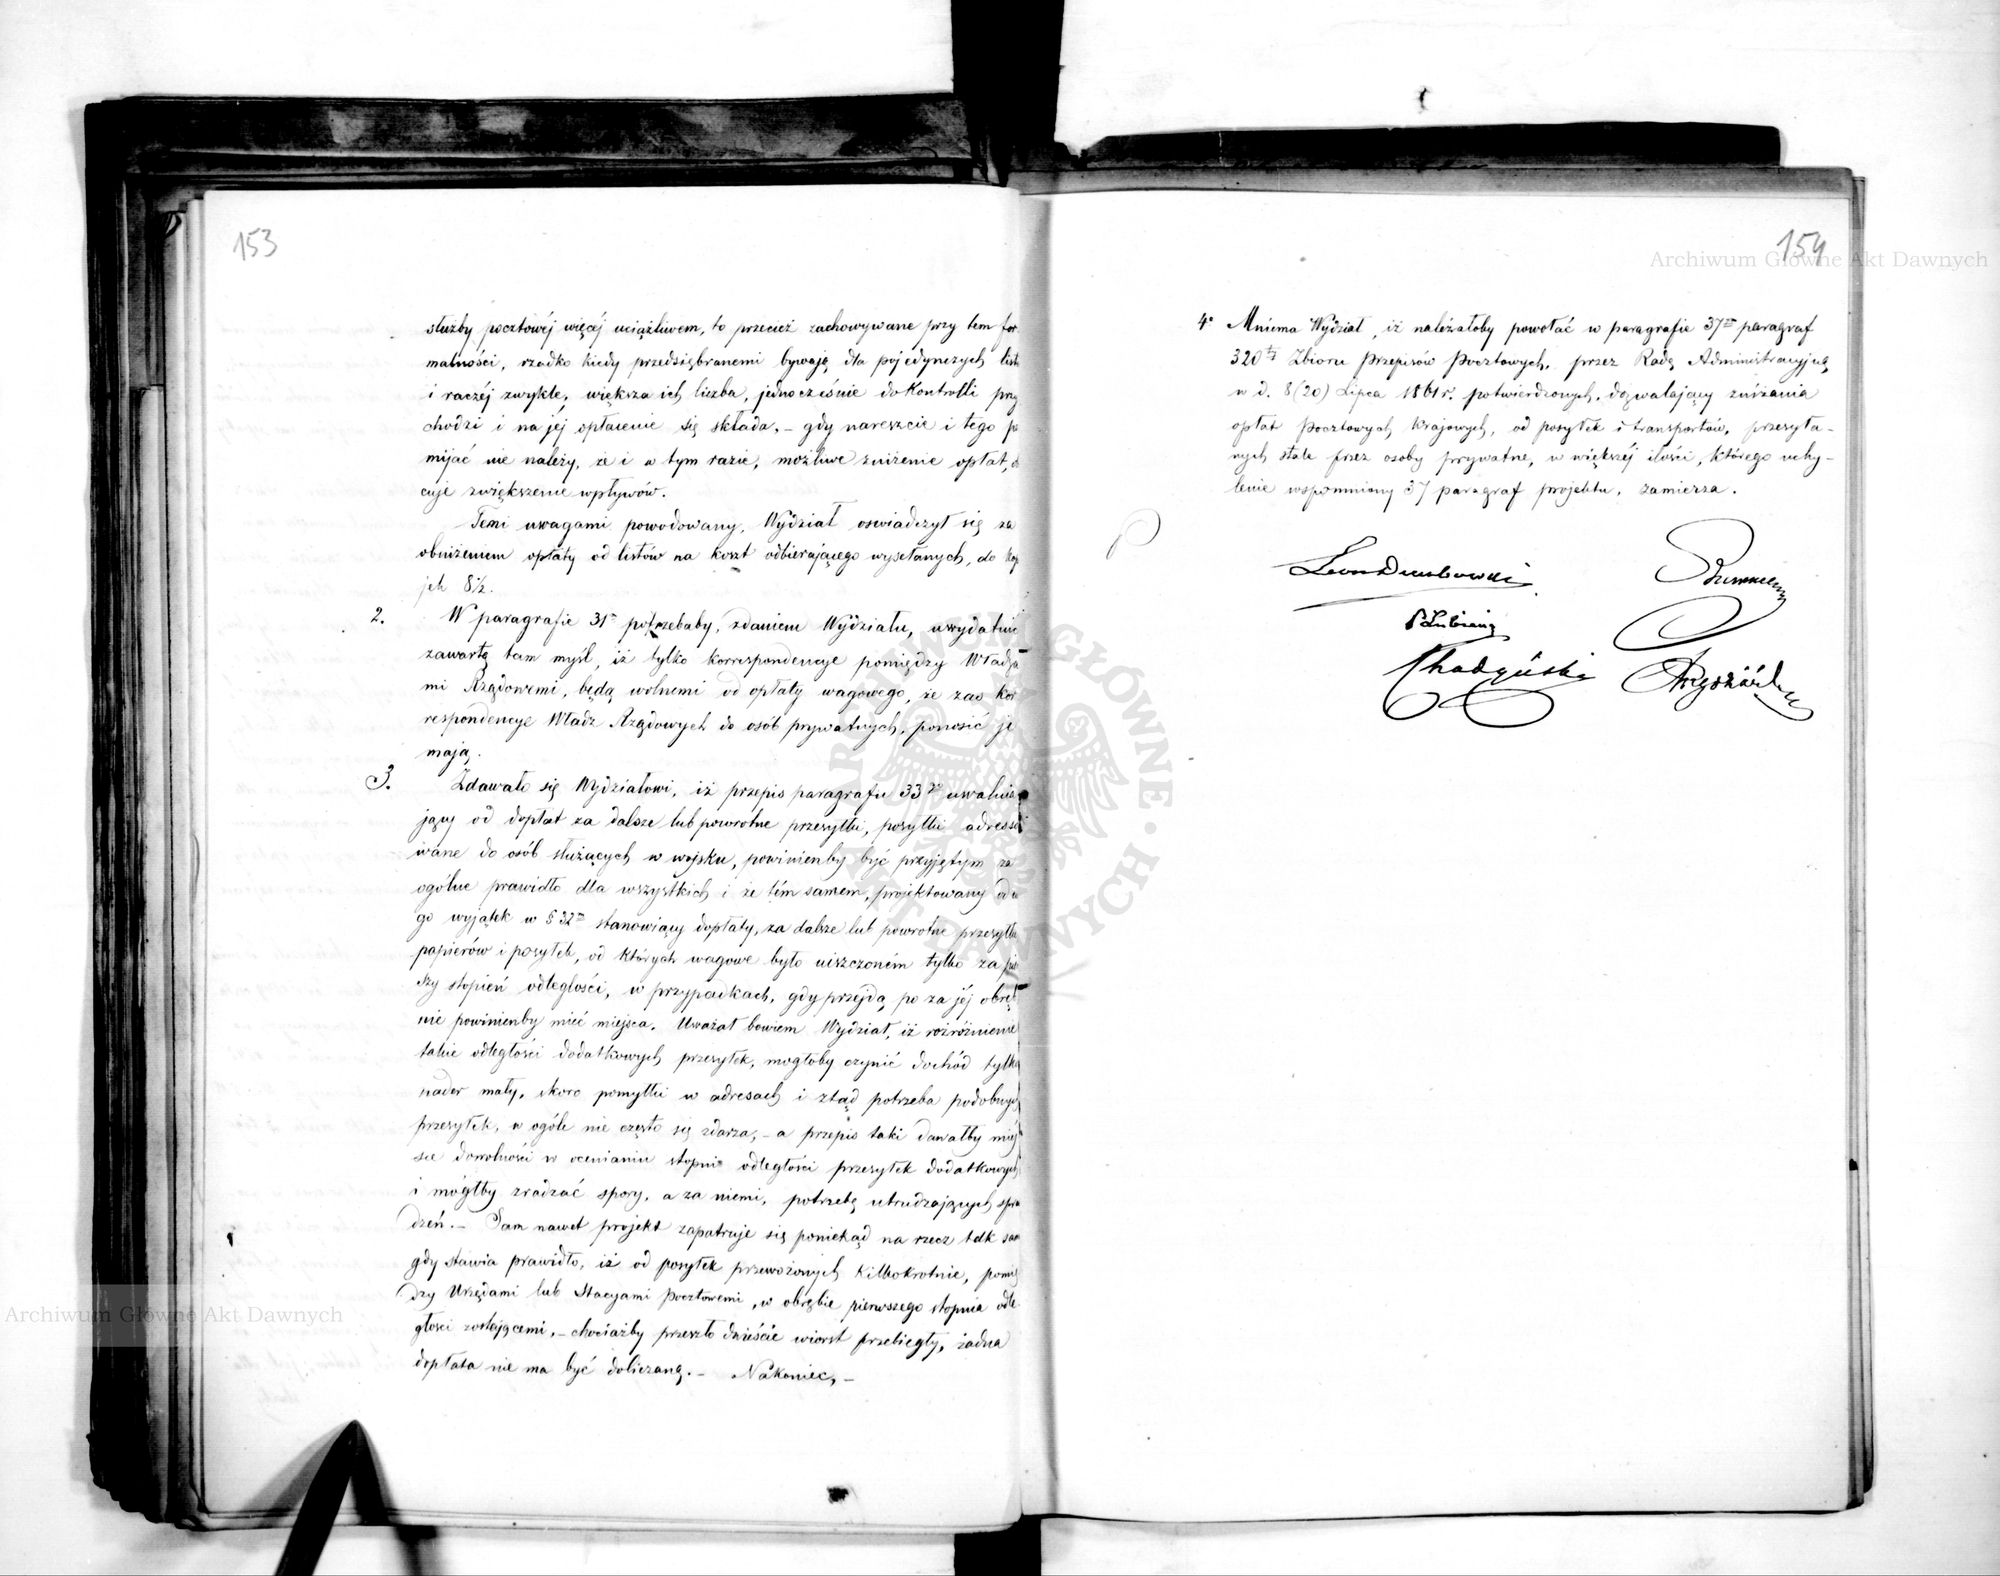 153
służby pocztowéj więcéj uciążliwem, to przecież zachowywane przy tem for
malności, rzadko kiedy przedsiębranemi bywają dla pojedynczych list
i raczéj zwykle, większa ich liczba, jednocześnie do Kontrolli przy
chodzi i na jej opłacenie się składa, – gdy nareszcie i tego po
mijać nie należy, że i w tym razie, możliwe zniżenie opłat,
cuje zwiększenie wpływów.
Temi uwagami powodowany, Wydział oświadczył się za
obniżeniem opłaty od listów na koszt odbierającego wysełanych, do kop
jek 8½.
2. W paragrafie 31m potrzebaby, zdaniem Wydziału, uwydatnić
zawartą tam myśl, iż tylko korrespondencye pomiędzy Władza
mi Rządowemi, będą wolnemi od opłaty wagowego, że zaś kor
respondencye Władz Rządowych do osób prywatnych, ponosić je
mają.
3. Zdawało się Wydziałowi, iż przepis paragrafu 33go uwalnia
jący od dopłat za dalsze lub powrotne przesyłki, posyłki adresso
wane do osób służących w wojsku, powinienby być przyjętym za
ogólne prawidło dla wszystkich i że tém samem, projektowany od
go wyjątek w § 32m stanowiący dopłaty, za dalsze lub powrotne przesyłki
papierów i posyłek, od których wagowe było uiszczoném tylko za pier
szy stopień odległości, w przypadkach, gdy przejdą po za jéj obręb
nie powinienby mieć miejsca. Uważał bowiem Wydział, iż rozróżnienie
takie odległości dodatkowych przesyłek, mogłoby czynić dochód tylko
nader mały, skoro pomyłki w adresach i ztąd potrzeba podobnych
przesyłek, w ogóle nie często się zdarza, – a przepis taki dawałby miej
sce dowolności w ocenianiu stopnia odległości przesyłek dodatkowych
i mógłby zradzać spory, a za niemi, potrzebę utrudzających spra
dzeń. – Sam nawet projekt zapatruje się poniekąd na rzecz tak sam
gdy stawia prawidło, iż od posyłek przewożonych Kilkokrotnie, pomię
dzy Urzędami lub Stacyami Pocztowemi, w obrębie pierwszego stopnia odle
głości zostającemi, – chociażby przeszło dwieście wiorst przebiegły, żadna
dopłata nie ma być doliczaną. – Nakoniec, –
154
4o Mniema Wydział, iż należałoby powołać w paragrafie 37m paragraf
320ty Zbioru Przepisów Pocztowych, przez Radę Administracyjną
w d. 8 (20) Lipca 1861 r. potwierdzonych, dozwalający zniżania
opłat Pocztowych krajowych, od posyłek i transportów, przesyła-
nych stale przez osoby prywatne, w większéj ilości, którego uchy-
lenie wspomniony 37 paragraf projektu, zamierza.
Leon Dembowski
Archiwum Główne Akt Dawnych
Archiwum Główne Akt Dawnych
ARCHIWUM GŁÓWNE AKT DAWNYCH